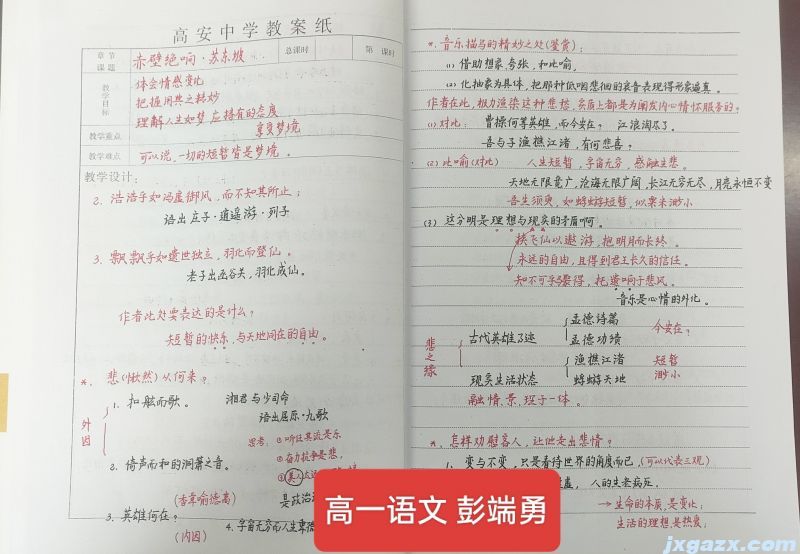 高安中学教案纸
章节
课题
赤壁绝响·苏东坡
总课时
第 课时
教学目标
体会情感变化
把握用典之精妙
理解人生如梦应持有的态度
教学重点
享受梦境
教学难点
可以说,一切的短暂皆是梦境。
教学设计:
2. 浩浩乎如冯虚御风,而不知其所止;
语出庄子·逍遥游·列子
3. 飘飘乎如遗世独立,羽化而登仙。
老子出函谷关,羽化成仙。
作者此处要表达的是什么?
短暂的快乐,与天地同在的自由。
*. 悲(愀然)从何来?
外因
1. 扣舷而歌。 湘君与少司命
语出屈原·九歌
思考:①听任其流是乐
②奋力抗争是悲,
2. 倚声而和的洞箫之音。
③美人
(香草喻德高)
是政治
3. 英雄何在?
(内因)
4. 宇宙无穷而人生
*. 音乐描写的精妙之处(鉴赏):
(1) 借助想象,夸张,和比喻,
(2) 化抽象为具体,把那种低咽悲徊的哀音表现得形象逼真。
作者在此,极力渲染这种悲愁,实质上都是为阐发内心情怀服务的。
(1) 对比: 曹操何等英雄,而今安在? 江浪淘尽了。
吾与子渔樵江渚,有何悲喜?
(2) 比喻(对比) 人生短暂,宇宙无穷,感触生悲。
天地无限宽广,沧海无限广阔,长江无穷无尽,月亮永恒不变
吾生须臾,如蜉蝣短暂,似粟米渺小
(3) 这分明是理想与现实的矛盾啊。
挟飞仙以遨游,抱明月而长终。
永远的自由,且得到君王长久的信任。
知不可乎骤得,托遗响于悲风。
音乐是心情的外化。
悲之缘
古代英雄事迹
孟德诗篇
孟德功绩
今安在?
现实生活状态
渔樵江渚
蜉蝣天地
短暂
渺小
融情、景、理于一体。
*. 怎样劝慰客人,让他走出悲情?
1. 变与不变,只是看待世界的角度而已,(可以代表三观)
人的生老病死.
→生命的本质,是变化;
生活的理想,是热爱;
高一语文 彭端勇
jxgazx.com